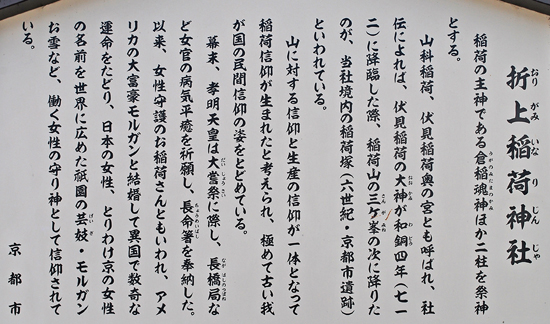 折上稲荷神社
おり がみ い なり じん じゃ
稲荷の主神である倉稲魂神ほか二柱を祭神
うがのみたまのかみ
とする。
山科稲荷、伏見稲荷奥の宮とも呼ばれ、社
伝によれば、伏見稲荷の大神が和銅四年(七一
おおかみ
わどう
二)に降臨した際、稲荷山の三ケ峯の次に降りた
さんがみね
のが、当社境内の稲荷塚(六世紀・京都市遺跡)
といわれている。
山に対する信仰と生産の信仰が一体となって
稲荷信仰が生まれたと考えられ、極めて古い我
が国の民間信仰の姿をとどめている。
幕末、孝明天皇は大嘗祭に際し、長橋局な
だいじょうさい
ながはしのつぼね
ど女官の病気平癒を祈願し、長命箸を奉納した。
ちょうめいばし
以来、女性守護のお稲荷さんともいわれ、アメ
リカの大富豪モルガンと結婚して異国で数奇な
運命をたどり、日本の女性、とりわけ京の女性
の名前を世界に広めた祇園の芸妓・モルガン
げいぎ
お雪など、働く女性の守り神として信仰されて
いる。
京都市